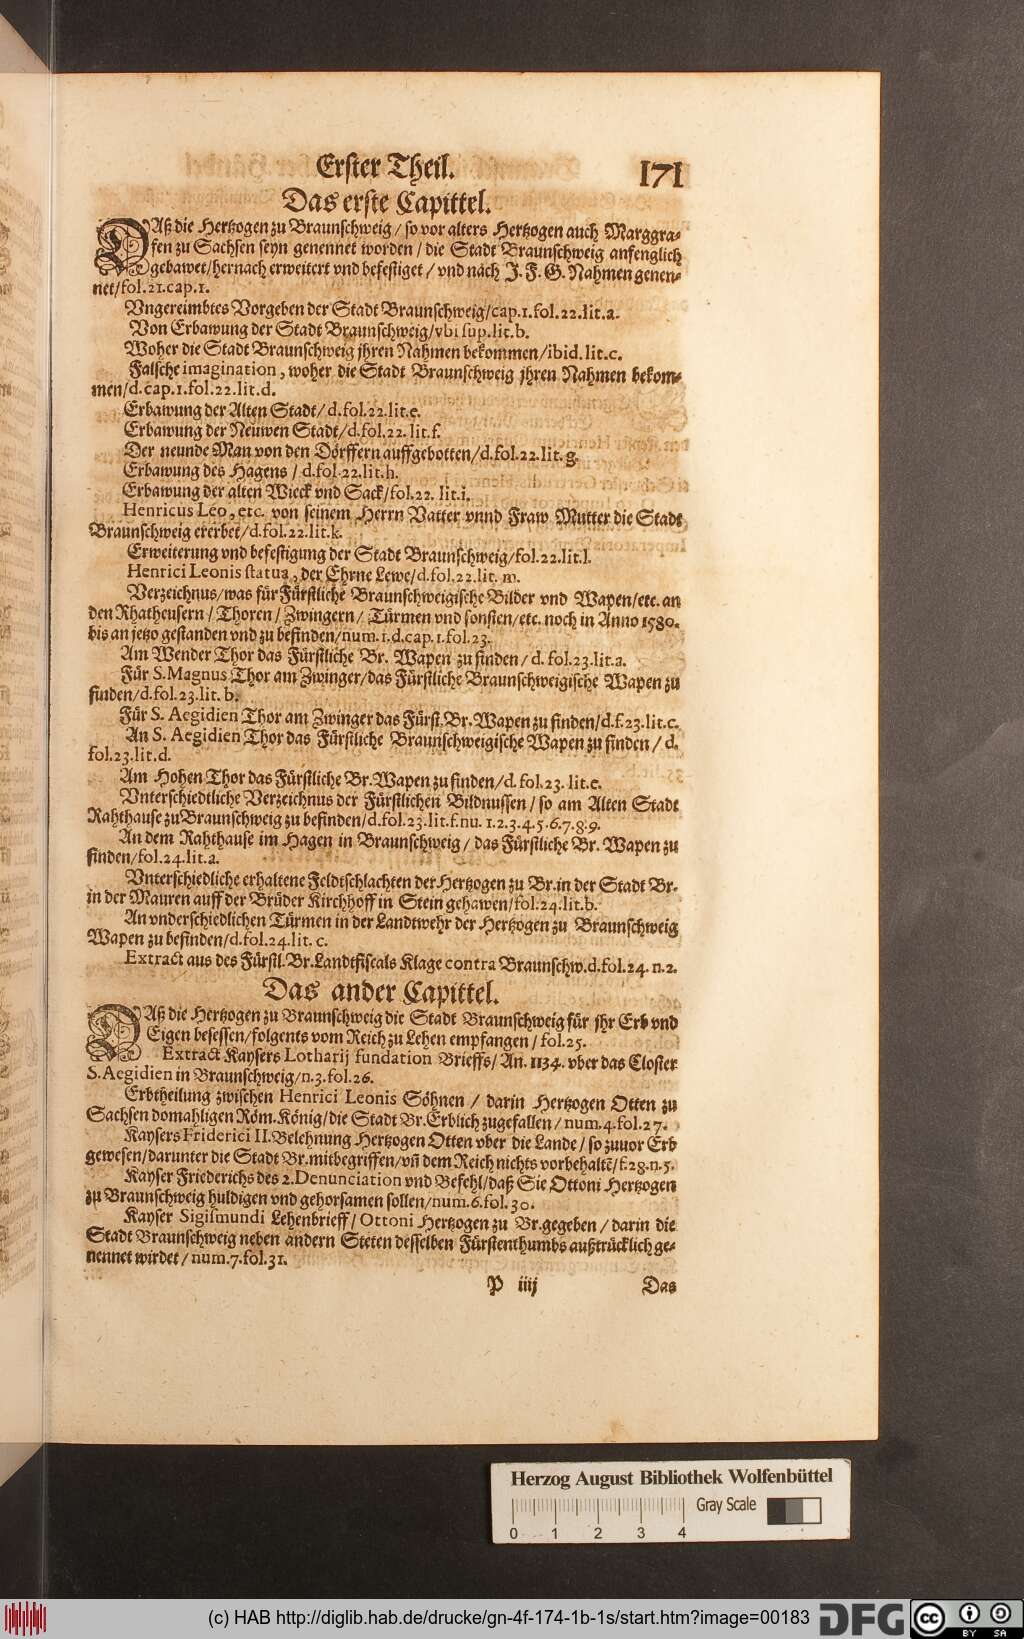 Erster Theil. 171
Das erste Capittel.
DAß die Hertzogen zu Braunschweig / so vor alters Hertzogen auch Marggra-
fen zu Sachsen seyn genennet worden / die Stadt Braunschweig anfenglich
gebawet/hernach erweitert vnd befestiget / vnd nach J. F. G. Nahmen genen-
net/fol.21.cap.1.
Vngereimbtes Vorgeben der Stadt Braunschweig/cap.1.fol.22.lit.a.
Von Erbawung der Stadt Braunschweig/vbi sup.lit.b.
Woher die Stadt Braunschweig jhren Nahmen bekommen/ibid.lit.c.
Falsche imagination, woher die Stadt Braunschweig jhren Nahmen bekom-
men/d.cap.1.fol.22.lit.d.
Erbawung der Alten Stadt/d.fol.22.lit.e.
Erbawung der Neuwen Stadt/d.fol.22.lit.f.
Der neunde Man von den Dörffern auffgebotten/d.fol.22.lit.g.
Erbawung des Hagens / d.fol.22.lit.h.
Erbawung der alten Wieck vnd Sack/fol.22. lit.i.
Henricus Leo, etc. von seinem Herrn Vatter vnnd Fraw Mutter die Stadt
Braunschweig ererbet/d.fol.22.lit.k.
Erweiterung vnd befestigung der Stadt Braunschweig/fol.22.lit.l.
Henrici Leonis statua, der Ehrne Lewe/d.fol.22.lit. m.
Verzeichnus/was für Fürstliche Braunschweigische Bilder vnd Wapen/etc. an
den Rhatheusern / Thoren / Zwingern / Türmen vnd sonsten/etc. noch in Anno 1580.
bis an jetzo gestanden vnd zu befinden/num.1.d.cap.1.fol.23.
Am Wender Thor das Fürstliche Br. Wapen zu finden / d. fol.23.lit.a.
Für S.Magnus Thor am Zwinger/das Fürstliche Braunschweigische Wapen zu
finden/d.fol.23.lit.b.
Für S. Aegidien Thor am Zwinger das Fürst.Br.Wapen zu finden/d.f.23.lit.c.
An S. Aegidien Thor das Fürstliche Braunschweigische Wapen zu finden / d.
fol.23.lit.d.
Am Hohen Thor das Fürstliche Br.Wapen zu finden/d.fol.23. lit.e.
Vnterschiedtliche Verzeichnus der Fürstlichen Bildnussen / so am Alten Stadt
Rahthause zu Braunschweig zu befinden/d.fol.23.lit.f.nu. 1.2.3.4.5.6.7.8.9.
An dem Rahthause im Hagen in Braunschweig / das Fürstliche Br. Wapen zu
finden/fol.24.lit.a.
Vnterschiedliche erhaltene Feldtschlachten der Hertzogen zu Br.in der Stadt Br-
in der Mauren auff der Brüder Kirchhoff in Stein gehawen/fol.24.lit.b.
An vnderschiedlichen Türmen in der Landtwehr der Hertzogen zu Braunschweig
Wapen zu befinden/d.fol.24.lit. c.
Extract aus des Fürstl.Br.Landtfiscals Klage contra Braunschw.d.fol.24. n.2.
Das ander Capittel.
DAß die Hertzogen zu Braunschweig die Stadt Braunschweig für jhr Erb vnd
Eigen besessen/folgents vom Reich zu Lehen empfangen / fol.25.
Extract Kaysers Lotharij fundation Brieffs/An. 1134. vber das Closter
S.Aegidien in Braunschweig/n.3.fol.26.
Erbtheilung zwischen Henrici Leonis Söhnen / darin Hertzogen Otten zu
Sachsen domahligen Röm.König/die Stadt Br.Erblich zugefallen / num.4.fol.27.
Kaysers Friderici II.Belehnung Hertzogen Otten vber die Lande / so zuuor Erb
gewesen/darunter die Stadt Br.mitbegriffen/vñ dem Reich nichts vorbehaltẽ/f.28.n.5.
Kayser Friederichs des 2.Denunciation vnd Befehl/daß Sie Ottoni Hertzogen
zu Braunschweig huldigen vnd gehorsamen sollen/num.6.fol.30.
Kayser Sigismundi Lehenbrieff / Ottoni Hertzogen zu Br.gegeben / darin die
Stadt Braunschweig neben andern Steten desselben Fürstenthumbs außtrücklich ge-
nennet wirdet / num.7.fol.31.
P iiij Das
Herzog August Bibliothek Wolfenbüttel
Gray Scale
0 1 2 3 4
(c) HAB http://diglib.hab.de/drucke/gn-4f-174-1b-1s/start.htm?image=00183
DFG cc BY SA